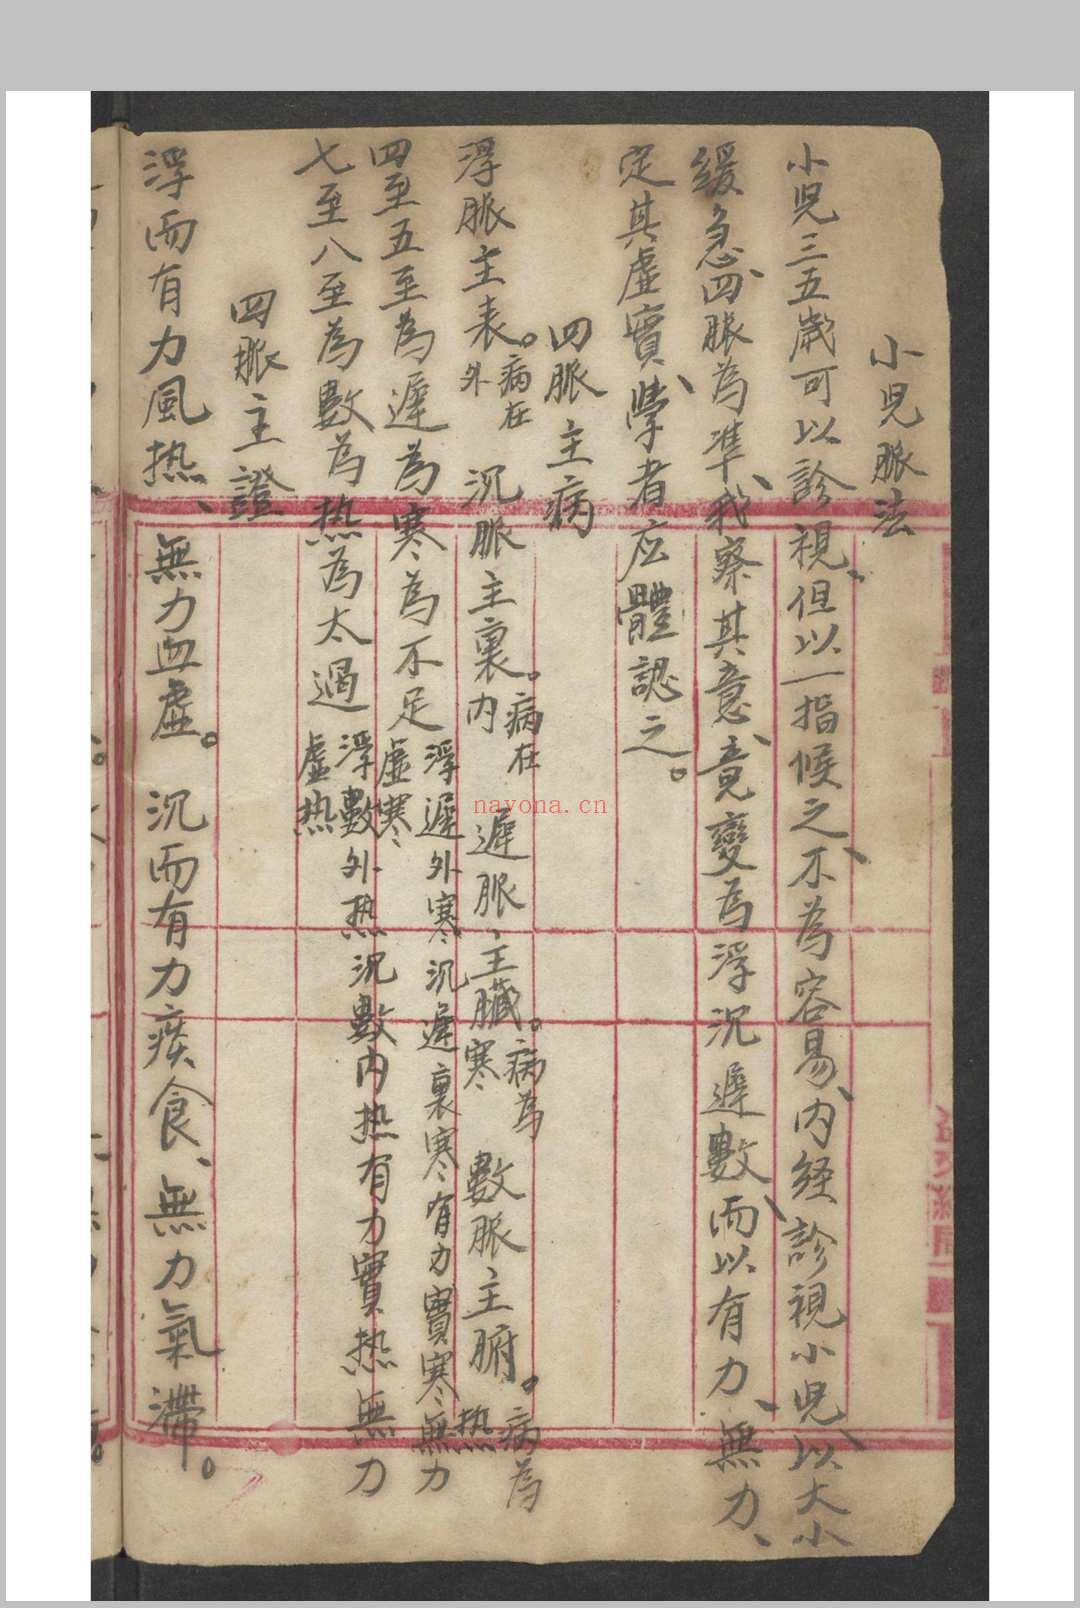 小児脈法
小児三五歲可以診視、但以一指候之、不為容易、内经診視小児、以大小
緩急、四脈為準、我察其意、竟變為浮沉遲數、而以有力、無力、
定其虛實、學者应體認之。
四脈主病
浮脈主表。病在外 沉脈主裏。病在内 遲脈、主臟。病為寒 數脈、主腑。病為热
四至五至為遲為寒為不足 浮遲外寒沉遲裏寒有力實寒無力虛寒
七至八至為數為热為太過 浮數外热沉數内热有力實热無力虛热
四脈主證
浮而有力風热、無力血虛。沉而有力痰食、無力氣滯。
nayona.cn